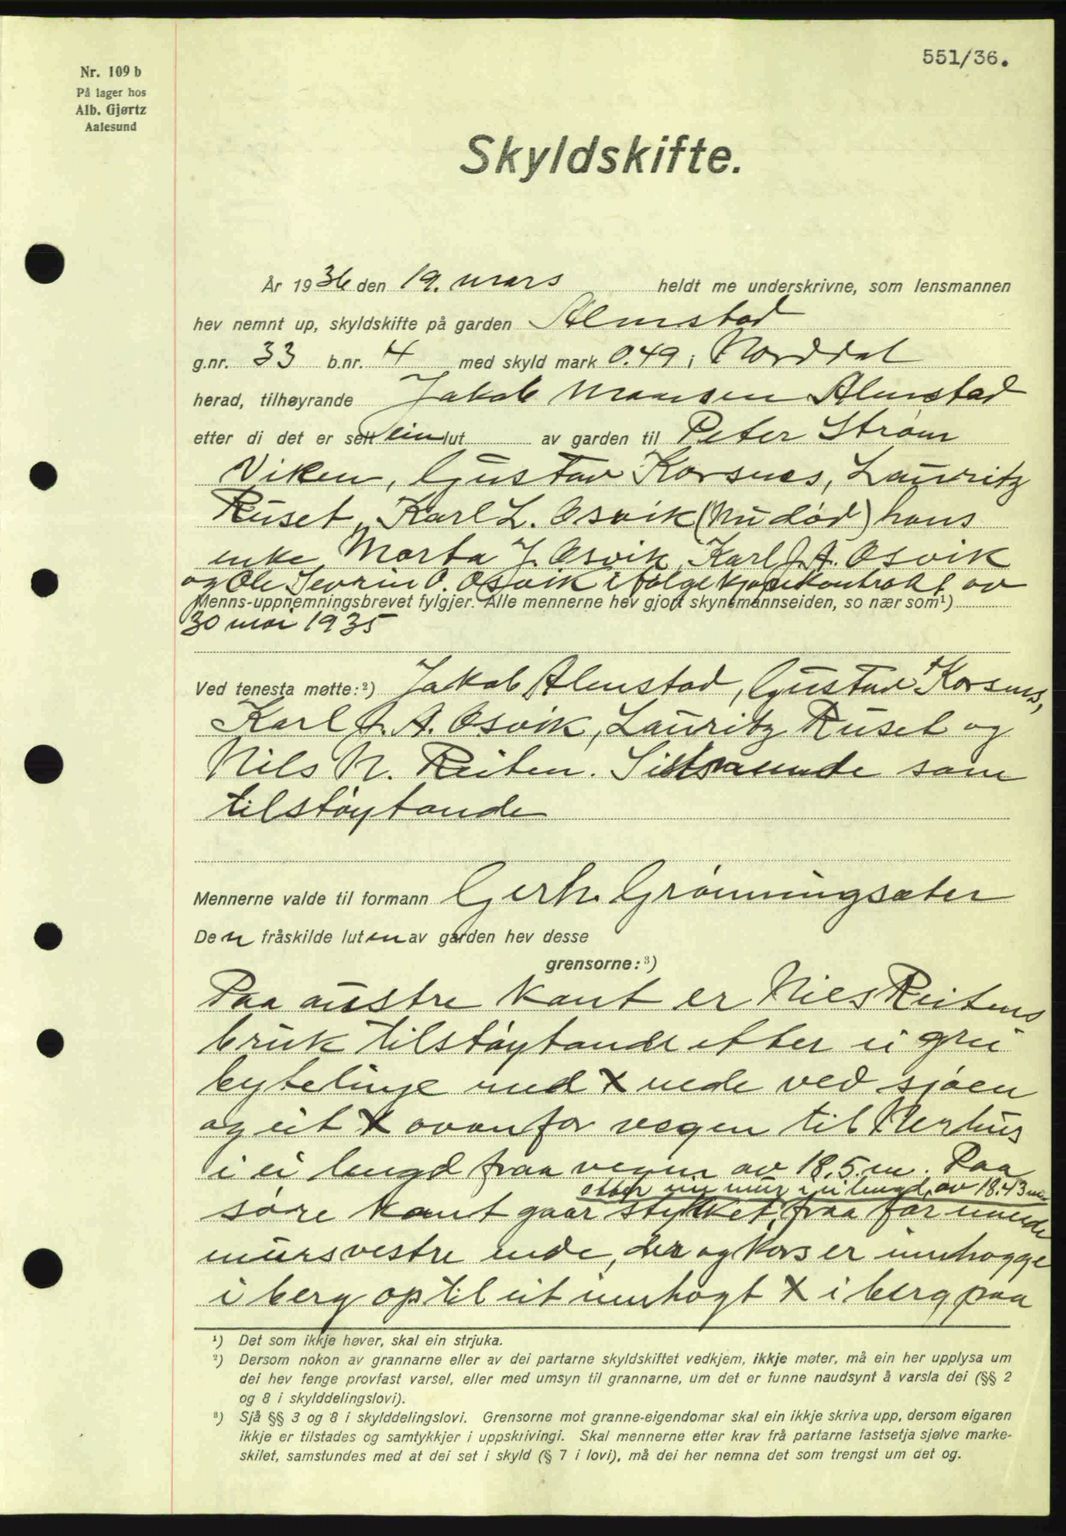 551/36.
Nr. 109 b
På lager hos
Alb. Gjørtz
Aalesund
Skyldskifte.
År 1936 den 19. mars heldt me underskrivne, som lensmannen
hev nemnt up, skyldskifte på garden Almstad
g.nr. 33 b.nr. 4 med skyld mark 0.49 i Norddal
herad, tilhøyrande Jakob Monsen Almstad
etter di det er selt ein lut av garden til Peter Strøm
Viken, Gustav Korsnes, Lauritz
Ruset, Karl L. Osvik (nu død) hans
enke Marta J. Osvik, Karl J. A. Osvik
og Ole Severin O. Osvik i følge kjøpekontrakt av
Menns-uppnemningsbrevet fylgjer. Alle mennerne hev gjort skynsmannseiden, so nær som¹)
30 mai 1935
Ved tenesta møtte:²) Jakob Almstad, Gustav Korsnes,
Karl J. A. Osvik, Lauritz Ruset og
Nils N. Reiten. Sistnemnde som
tilstøytande
Mennerne valde til formann Gerh. Grønningsæter
Den fråskilde luten av garden hev desse
grensorne:³)
Paa austre kant er Nils Reitens
bruk tilstøytande etter ei grei
bytelinje med X nede ved sjøen
og eit X ovanfor vegen til Nerhus
i ei lengd fraa vegen av 18,5 m. Paa
etter ein mur i ei lengd av 18.43 m
søre kant gaar stykket, fraa før nemnde
murs vestre ende, der og kors er innhogge
i berg op til eit innhogt X i berg paa
¹) Det som ikkje høver, skal ein strjuka.
²) Dersom nokon av grannarne eller av dei partarne skyldskiftet vedkjem, ikkje møter, må ein her upplysa um
dei hev fenge provfast varsel, eller med umsyn til grannarne, um det er funne naudsynt å varsla dei (§§ 2
og 8 i skylddelingslovi).
³) Sjå §§ 3 og 8 i skylddelingslovi. Grensorne mot granne-eigendomar skal ein ikkje skriva upp, dersom eigaren
ikkje er tilstades og samtykkjer i uppskrivingi. Skal mennerne etter krav frå partarne fastsetja sjølve marke-
skilet, samstundes med at dei set i skyld (§ 7 i lovi), må dei her nemna det som trengst um det og.